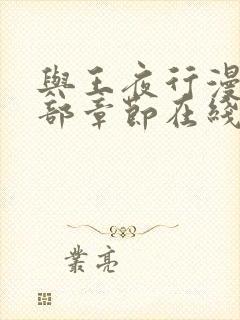 與王夜行漫
部章節在綫
葉亮